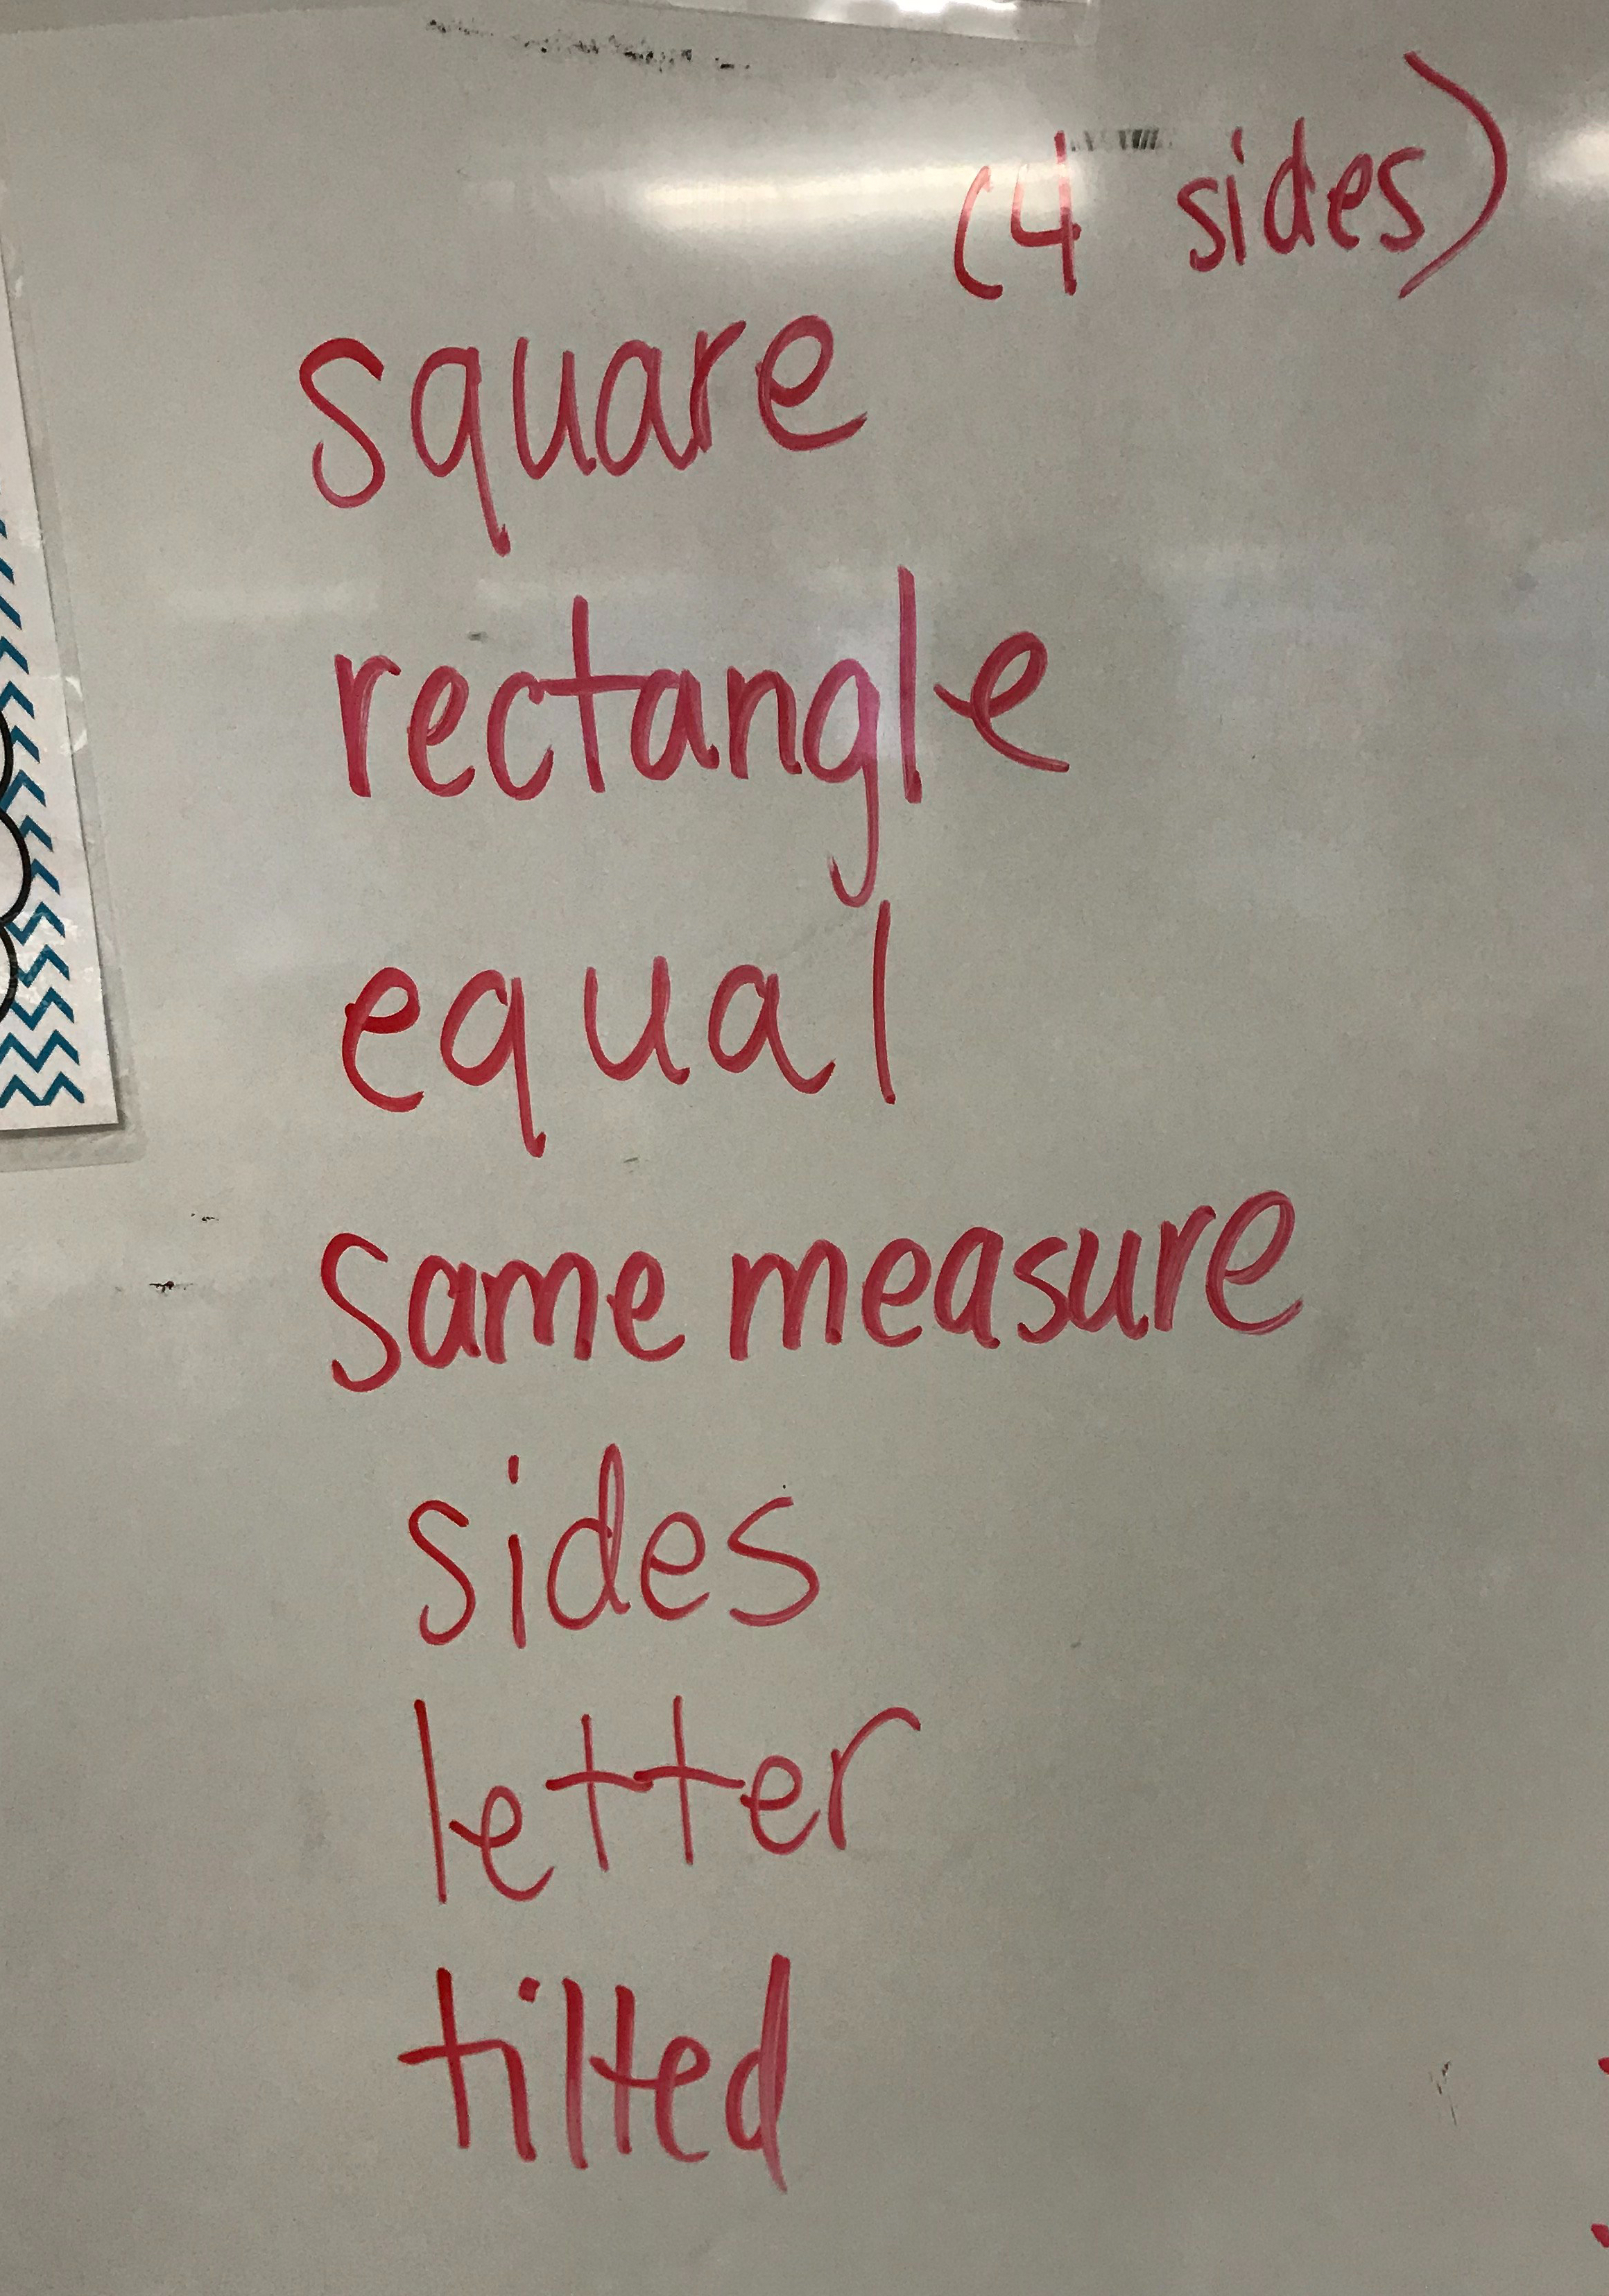 (4 sides)
square
rectangle
equal
same measure
sides
letter
tilted